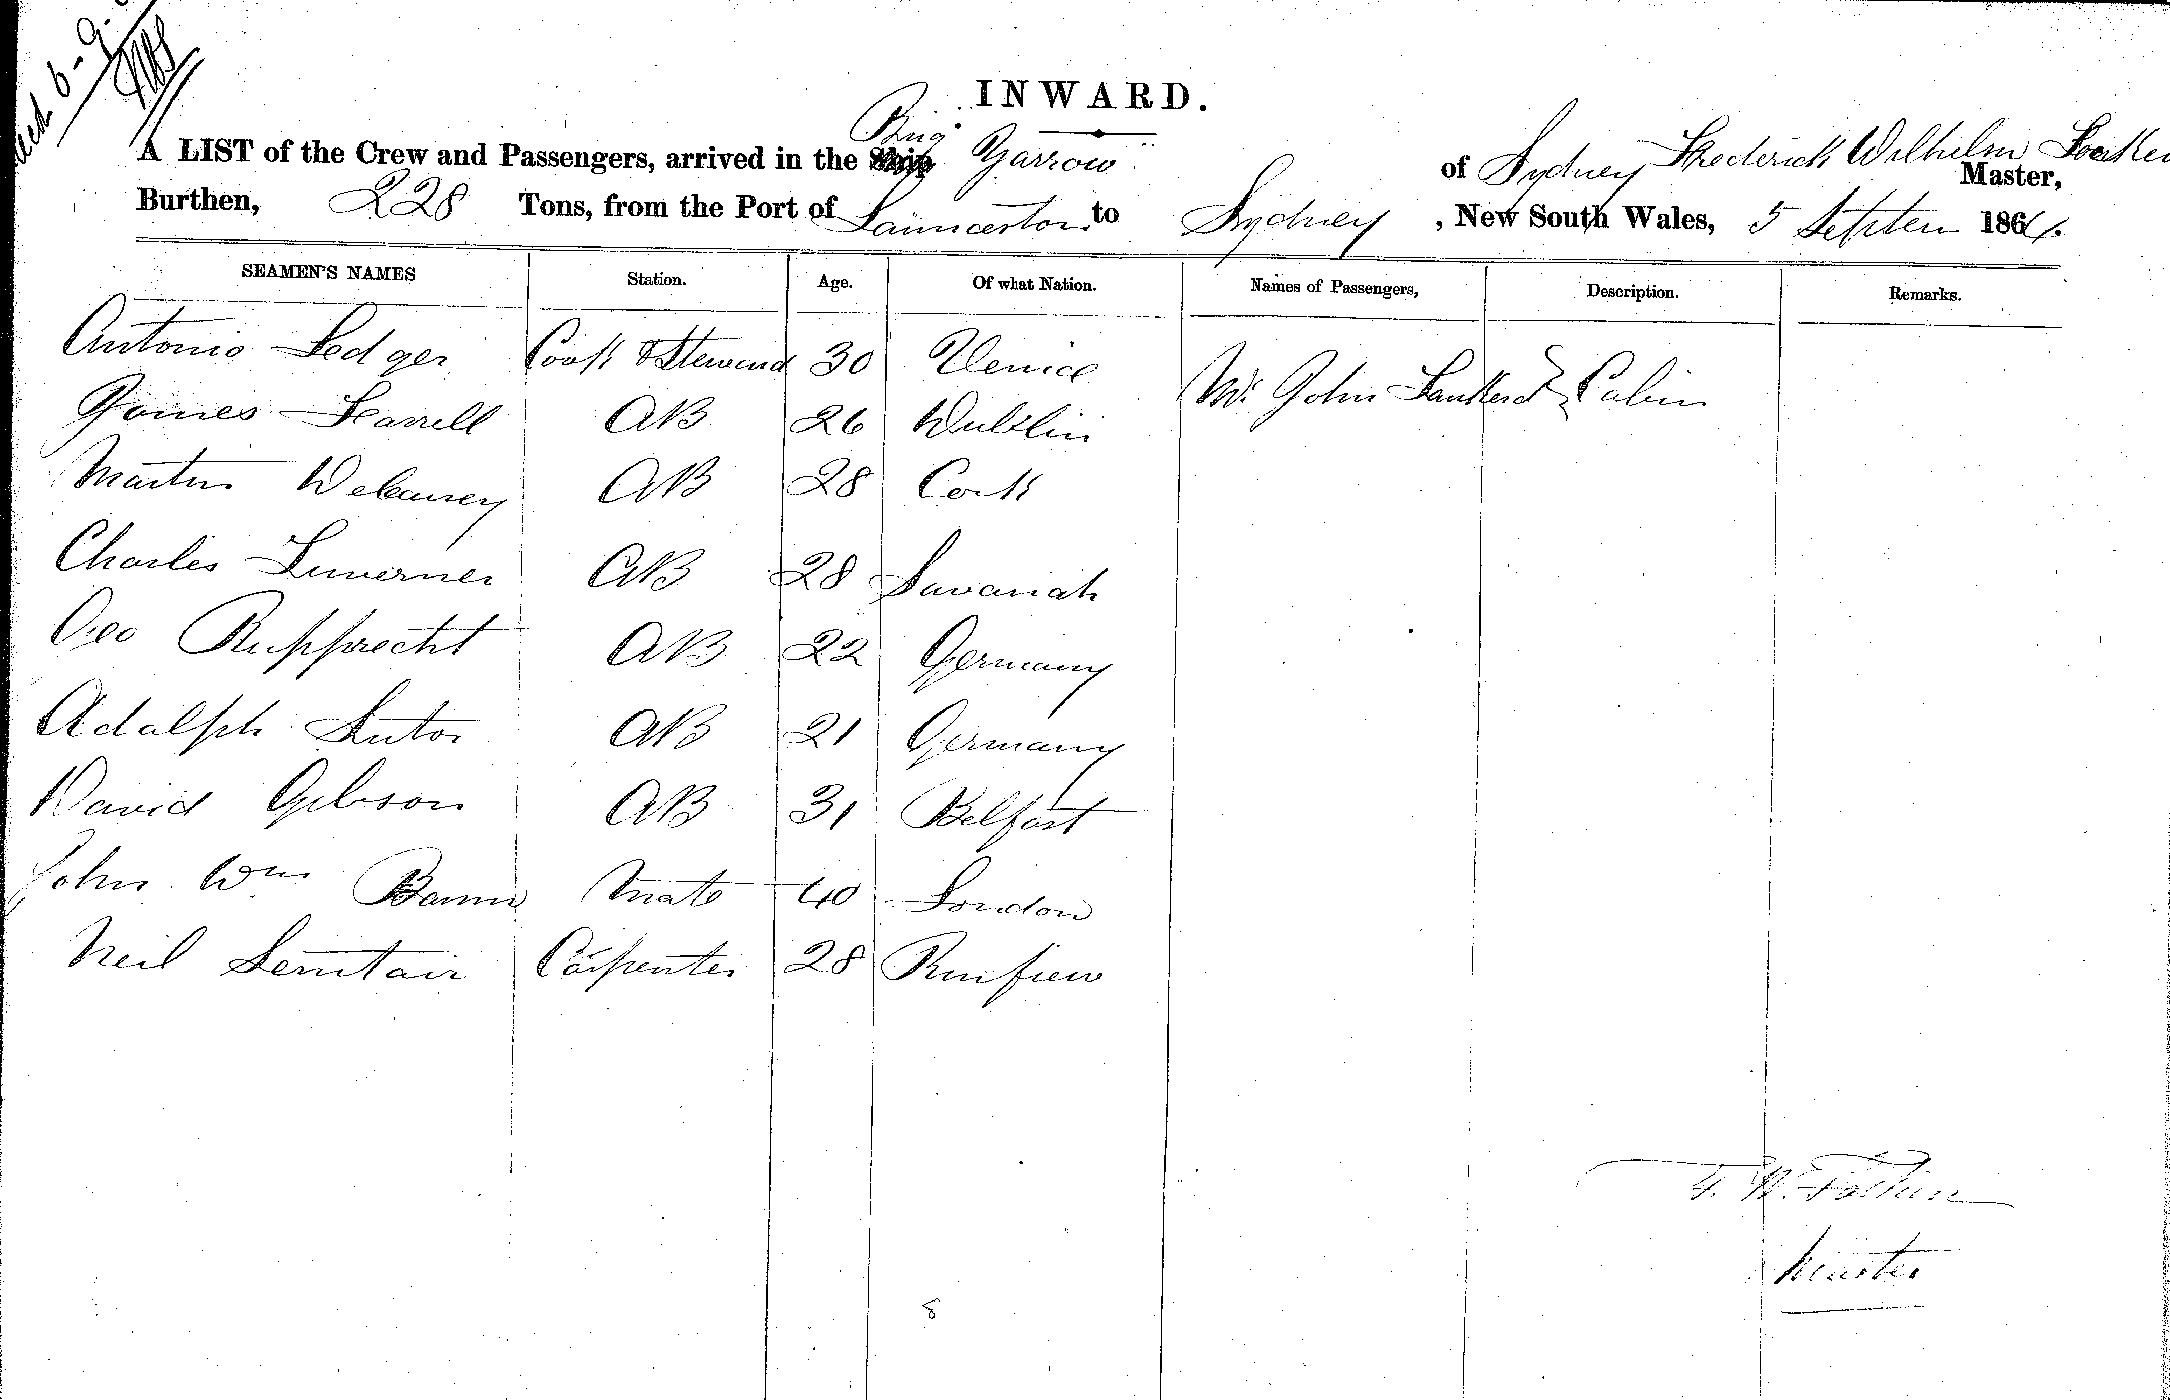 INWARD.
A LIST of the Crew and Passengers, arrived in the Brig Yarrow of Sydney Frederick Wilhelm Master,
Burthen, 228 Tons, from the Port of Launceston to Sydney, New South Wales, 5 Septem 1864.
SEAMEN'S NAMES Station. Age. Of what Nation. Names of Passengers, Description. Remarks.
Antonio Ledger Cook & Steward 30 Venice
Mr John Cabin
James Farrell AB 26 Dublin
Martin Delaney AB 28 Cork
Charles AB 28 Savanah
Geo Rupprecht AB 22 Germany
Adalph Sutor AB 21 Germany
David Gibson AB 31 Belfast
John Wm Mate 40 London
Neil Carpenter 28 Renfrew
F. W.
Master
8